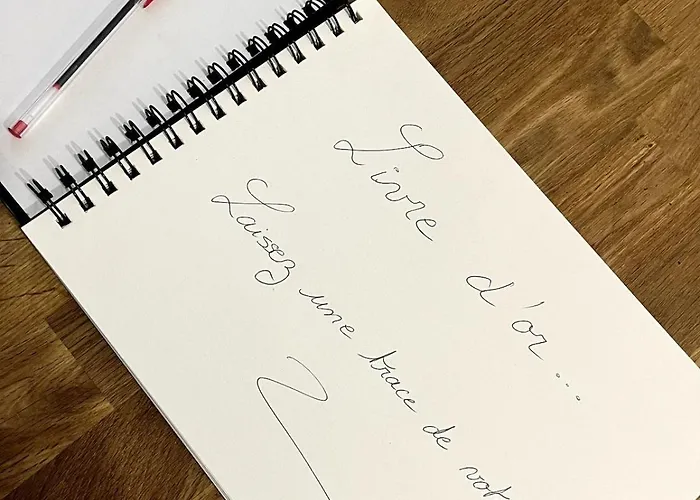 Livre d'or...
Laissez une trace de vot